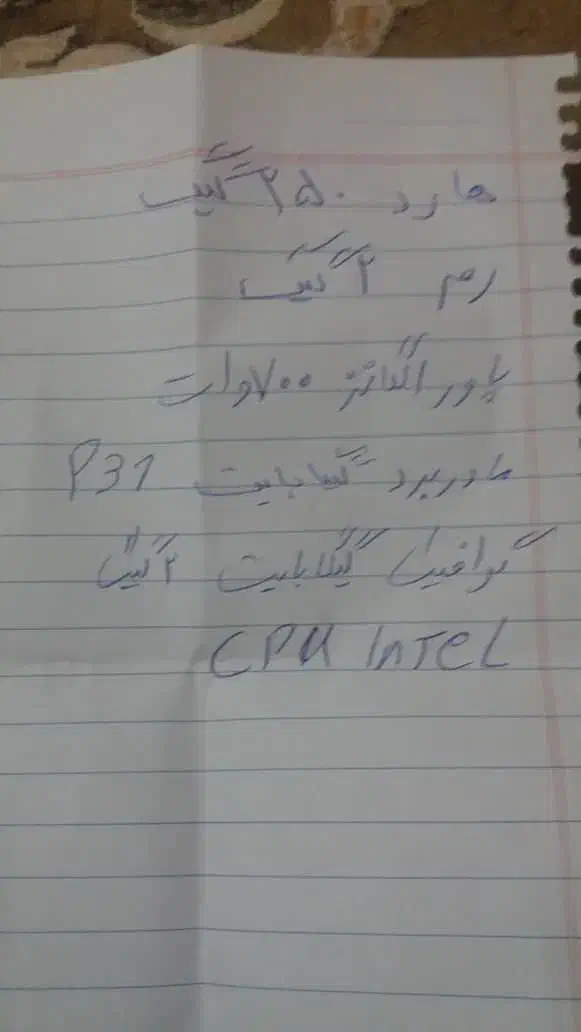 هارد ۲۵۰ گیگ
رم ۲ گیگ
پاور الگانژ ۷۰۰ وات
مادربرد گیگابایت P31
گرافیک گیگابایت ۲ گیگ
CPU INTEL